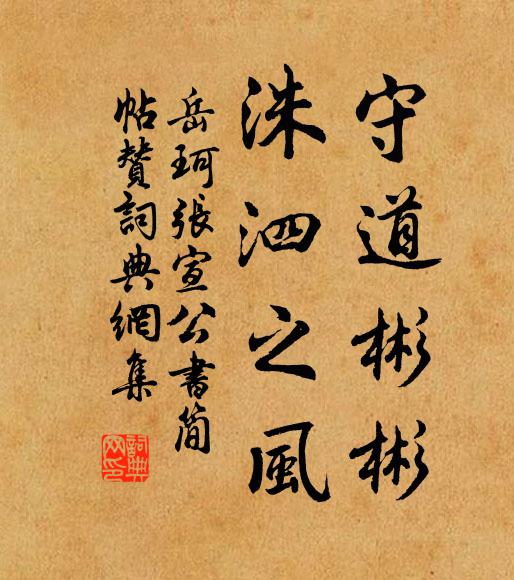 守道彬彬
洙泗之風
岳珂張宣公書簡
帖贊詞典網集
詞典
网印